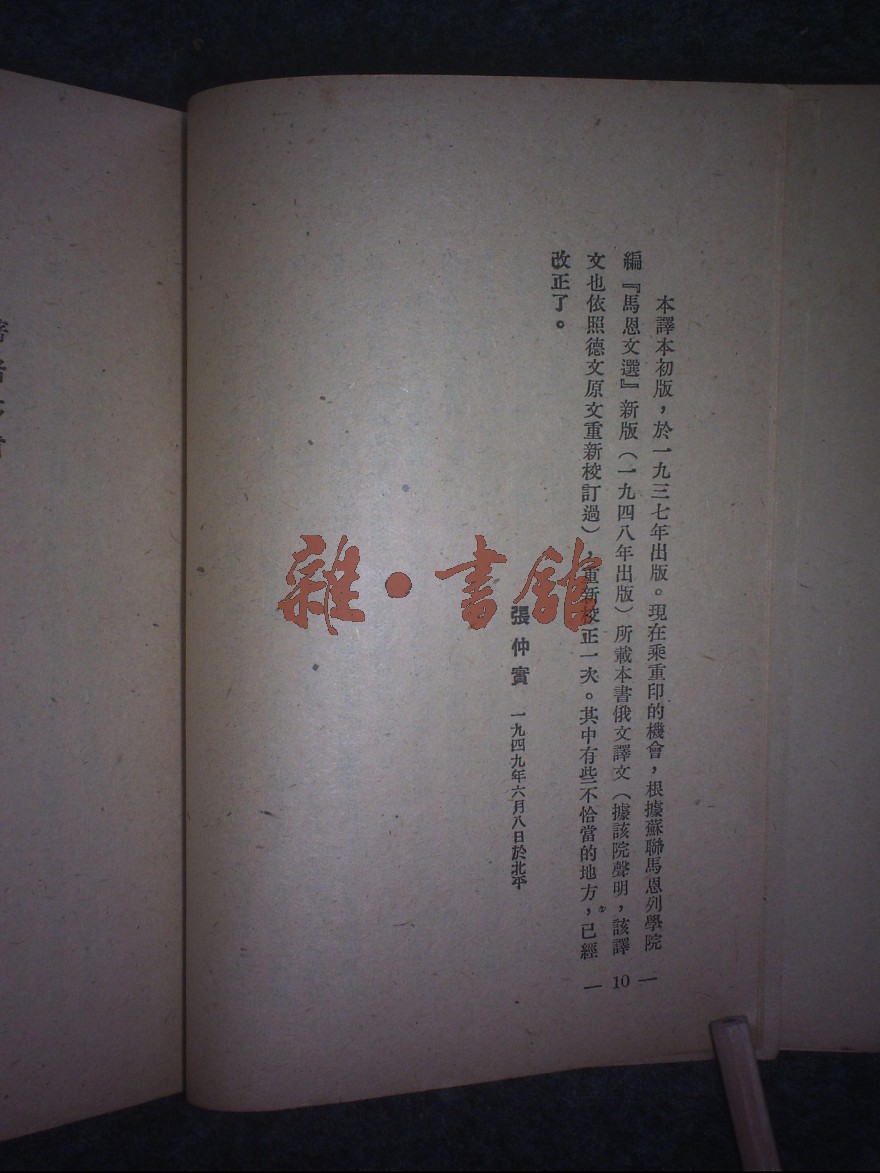 本譯本初版，於一九三七年出版。現在乘重印的機會，根據蘇聯馬恩列學院
編『馬恩文選』新版（一九四八年出版）所載本書俄文譯文（據該院聲明，該譯
文也依照德文原文重新校訂過），重新校正一次。其中有些不恰當的地方，已經
改正了。
張仲實 一九四九年六月八日於北平
— 10 —
雜·書館